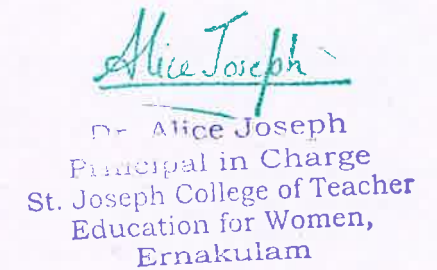 Alice Joseph
Dr Alice Joseph
Principal in Charge
St. Joseph College of Teacher
Education for Women,
Ernakulam